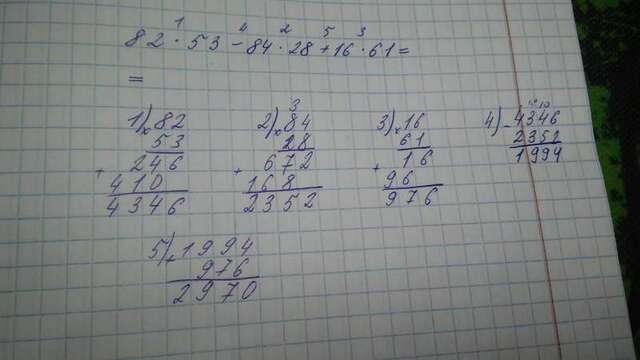 1 4 2 5 3
82 · 53 - 84 · 28 + 16 · 61 =
=
1) × 82
53
+ 246
410
4346
3
2) × 84
28
+ 672
168
2352
3) × 16
61
+ 16
96
976
4) - 4346
2352
1994
5) + 1994
976
2970